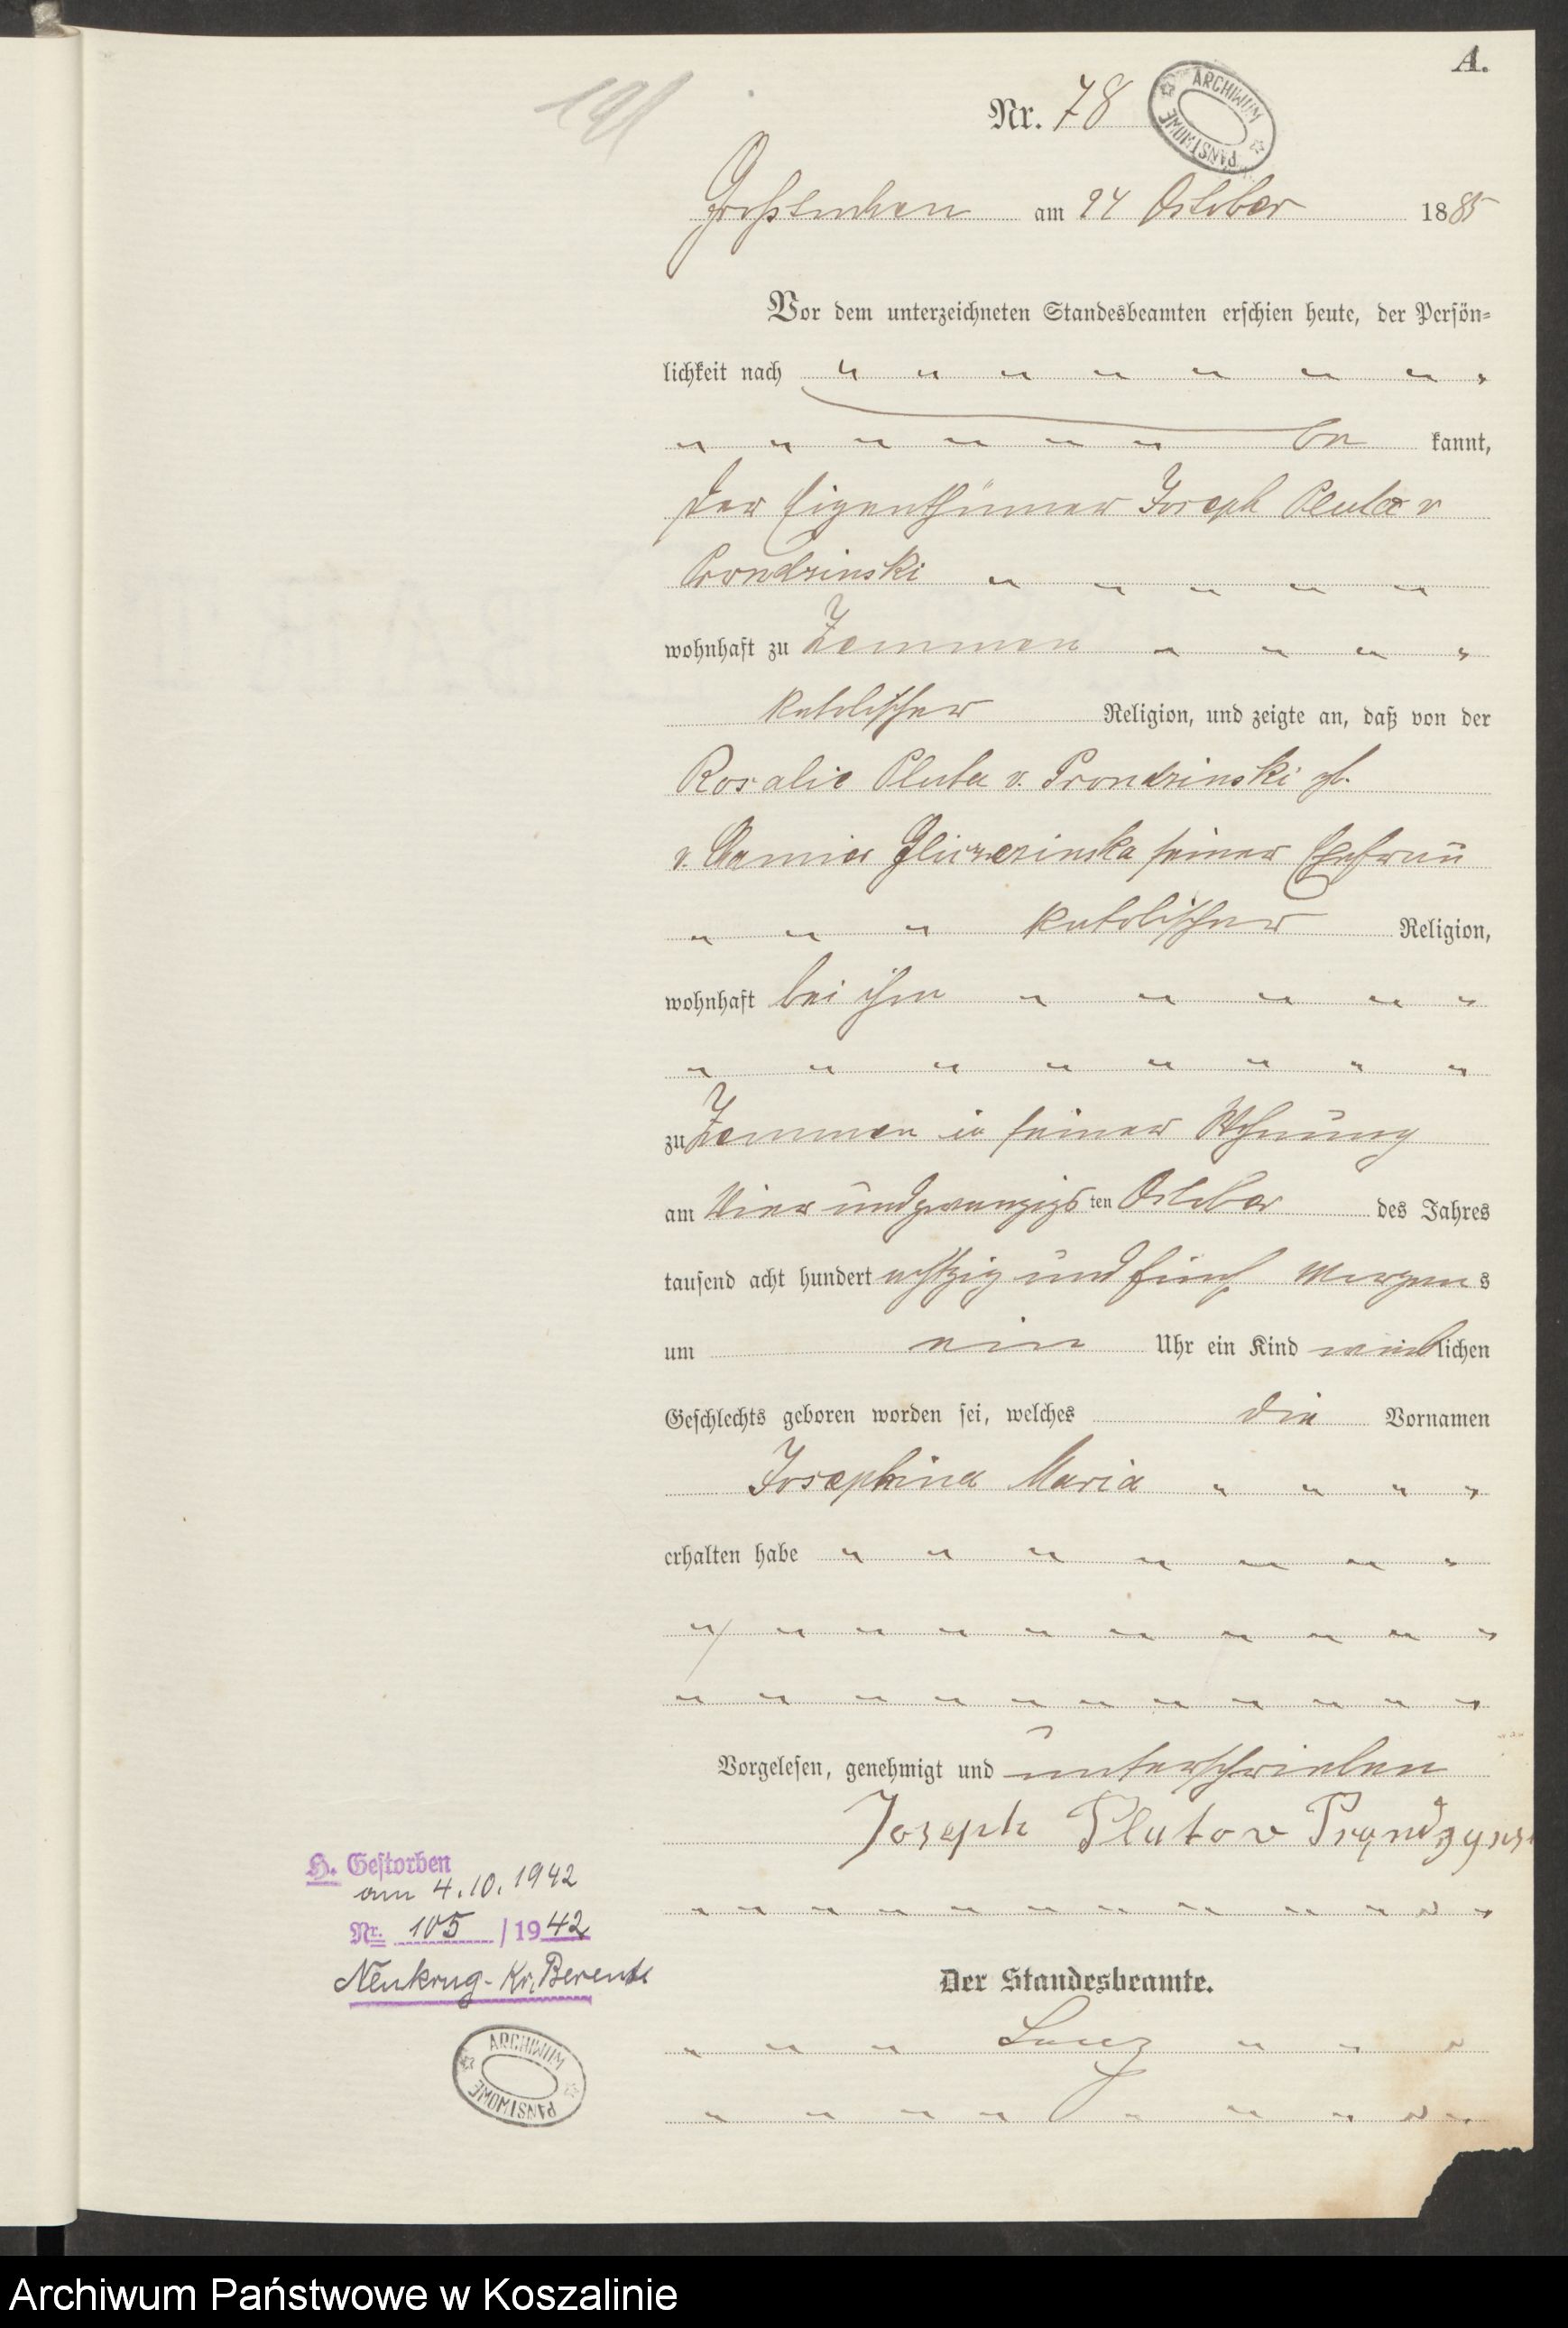 A.
191
Nr. 78
ARCHIWUM PAŃSTWOWE
Großtuchen am 24 October 1885
Vor dem unterzeichneten Standesbeamten erschien heute, der Persön=
lichkeit nach " " " " " " " "
" " " " " " be kannt,
der Eigenthümer Joseph Pluta v
Prondzinski " " " " "
wohnhaft zu Zemmen " " " "
katolischer Religion, und zeigte an, daß von der
Rosalie Pluta v. Prondzinski gb.
v. seiner Ehefrau
" " " katolischer Religion,
wohnhaft bei ihm " " " " "
" " " " " " " "
zu Zemmen in seiner Wohnung
am Vier und zwanzigs ten October des Jahres
tausend acht hundert achtzig und fünf Morgens
um ein Uhr ein Kind weiblichen
Geschlechts geboren worden sei, welches die Vornamen
Josephina Maria " " " "
erhalten habe " " " " " " "
" " " " " " " " " "
" " " " " " " " " " "
Vorgelesen, genehmigt und unterschrieben
Joseph Pluto v
" " " " " " " " " " " " "
Der Standesbeamte.
" " " " " "
" " " " " " " " "
H. Gestorben
am 4.10.1942
Nr. 105 / 1942
Neukrug - Kr. Berent
ARCHIWUM PAŃSTWOWE
Archiwum Państwowe w Koszalinie